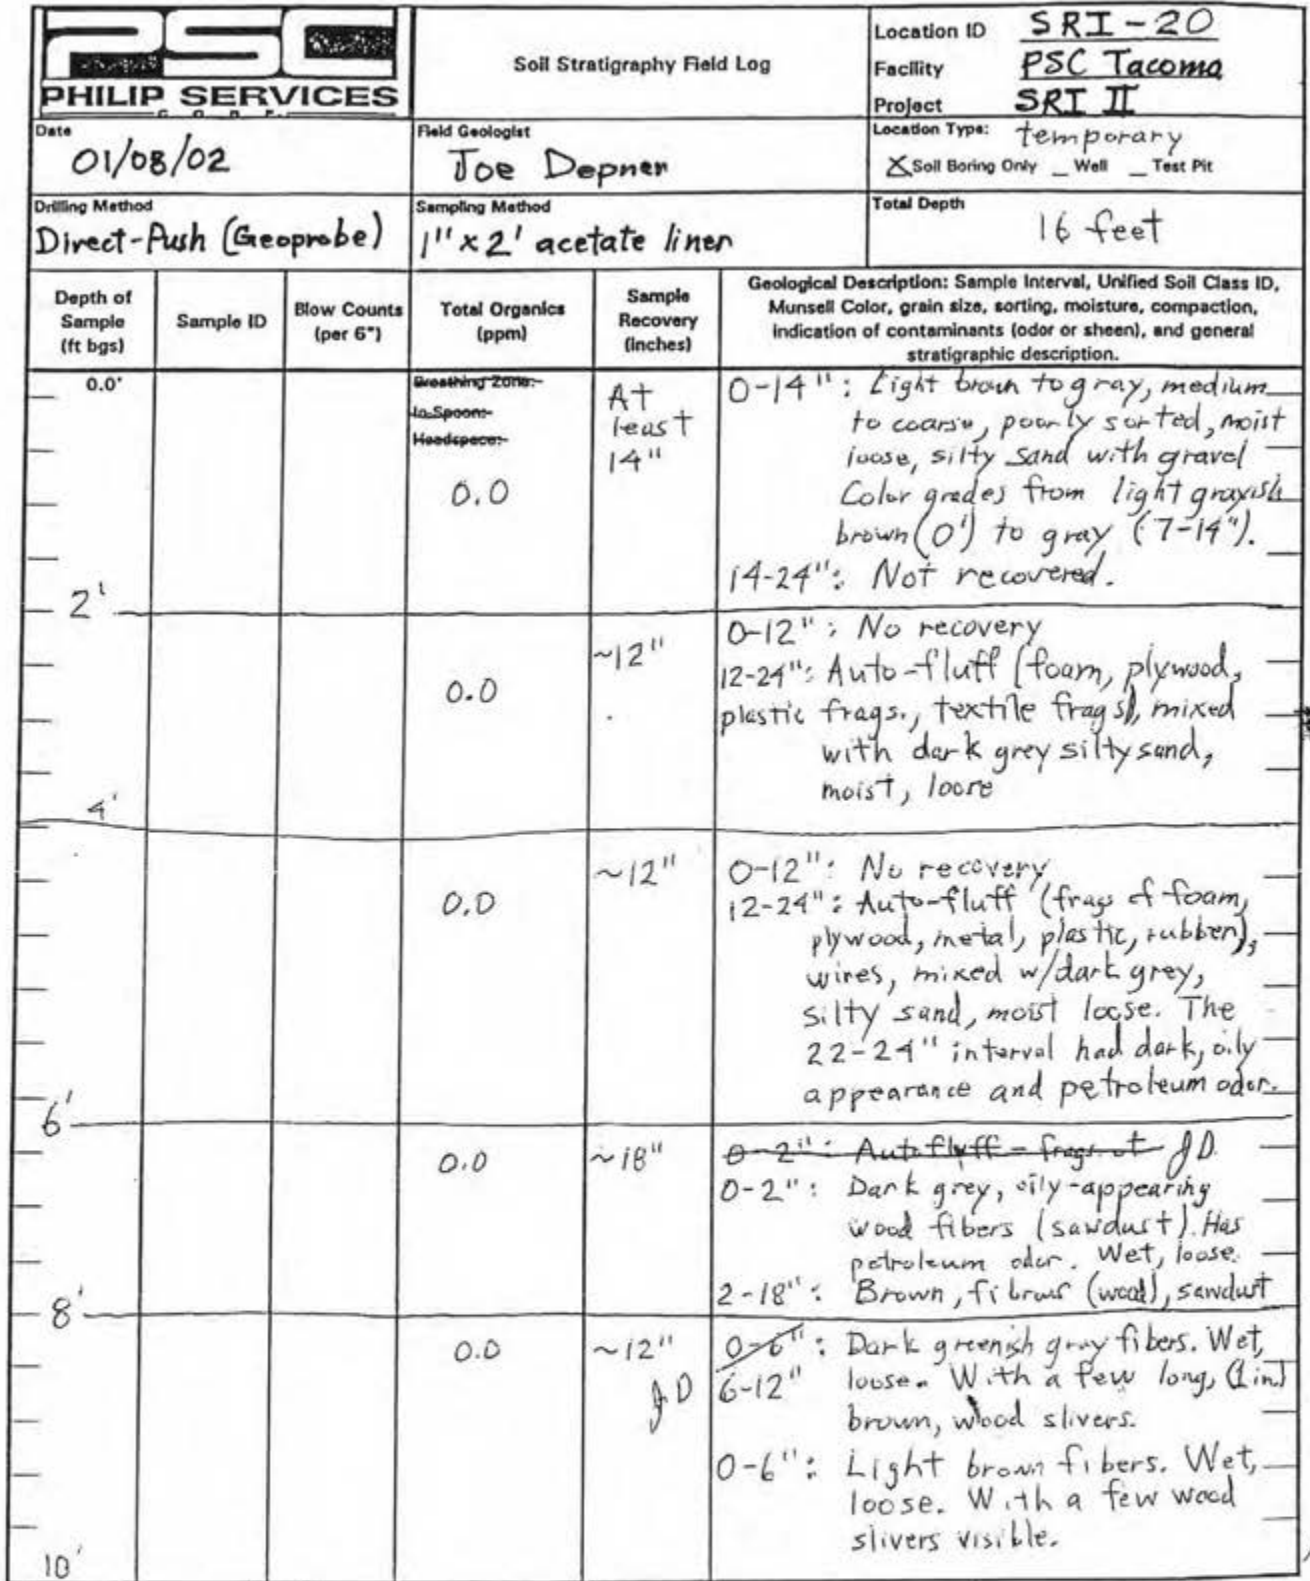 PSC
PHILIP SERVICES
C O R P.
Soil Stratigraphy Field Log
Location ID SRI-20
Facility PSC Tacoma
Project SRI II
Date
01/08/02
Field Geologist
Joe Depner
Location Type: temporary
X Soil Boring Only _ Well _ Test Pit
Drilling Method
Direct-Push (Geoprobe)
Sampling Method
1" x 2' acetate liner
Total Depth
16 feet
Depth of
Sample
(ft bgs)
Sample ID
Blow Counts
(per 6")
Total Organics
(ppm)
Sample
Recovery
(inches)
Geological Description: Sample Interval, Unified Soil Class ID,
Munsell Color, grain size, sorting, moisture, compaction,
indication of contaminants (odor or sheen), and general
stratigraphic description.
0.0'
Breathing Zone:
In Spoon:
Headspace:
0.0
At
least
14"
0-14": Light brown to gray, medium
to coarse, poorly sorted, moist
loose, silty sand with gravel
Color grades from light grayish
brown (0') to gray (7-14").
14-24": Not recovered.
2'
0.0
~12"
0-12": No recovery
12-24": Auto-fluff (foam, plywood,
plastic frags., textile frags), mixed
with dark grey silty sand,
moist, loose
4'
0.0
~12"
0-12": No recovery
12-24": Auto-fluff (frags of foam,
plywood, metal, plastic, rubber),
wires, mixed w/dark grey,
silty sand, moist loose. The
22-24" interval had dark, oily
appearance and petroleum odor.
6'
0.0
~18"
0-2": Autofluff - frags of JD
0-2": Dark grey, oily-appearing
wood fibers (sawdust). Has
petroleum odor. Wet, loose.
2-18": Brown, fibrous (wood), sawdust
8'
0.0
~12"
JD
0-6": Dark greenish gray fibers. Wet,
6-12" loose. With a few long, (1 in)
brown, wood slivers.
0-6": Light brown fibers. Wet,
loose. With a few wood
slivers visible.
10'